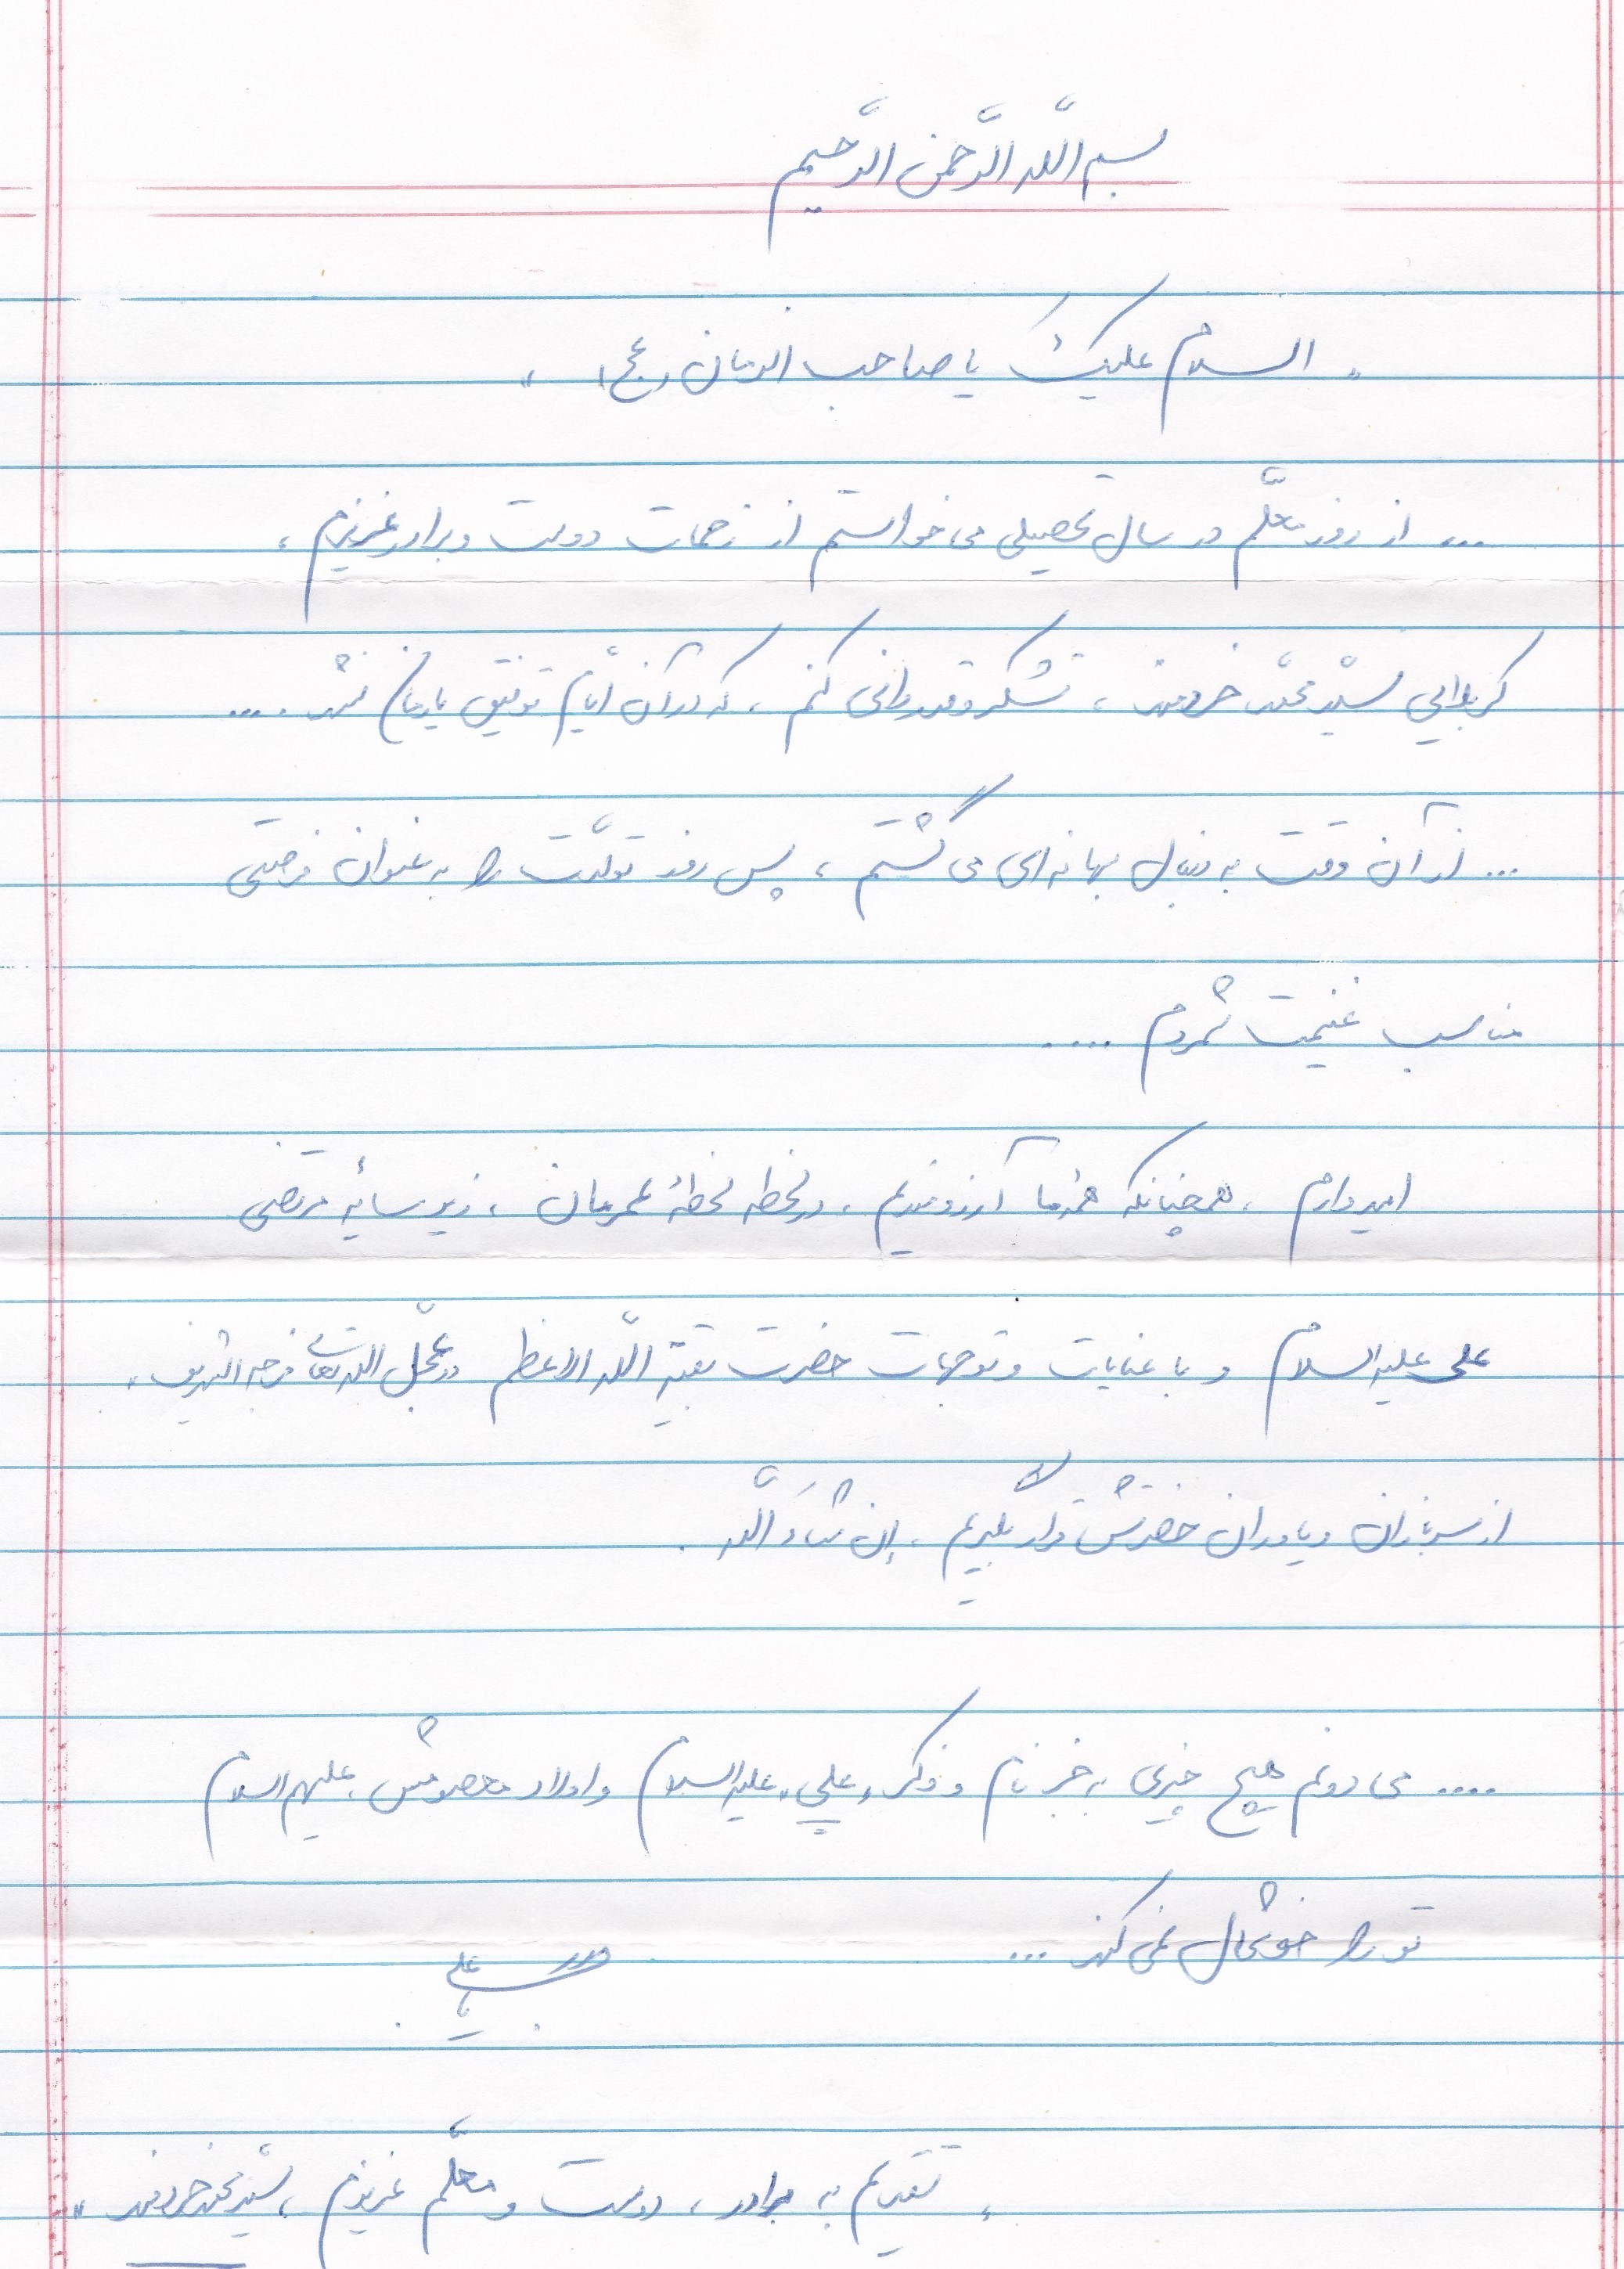 بسم اللّه الرّحمن الرّحیم
« السلام علیک یا صاحب الزمان (عج) »
... از روز معلّم در سال تحصیلی می خواستم از زحمات دوست و برادر عزیزم ،
کربلایی سیّد محمّد خردمند ، تشکر و قدردانی کنم ، که در آن ایّام توفیق یارمان نشد ....
... از آن وقت به دنبال بهانه ای می گشتم ، پس روز تولّدت را به عنوان فرصتی
مناسب غنیمت شمردم ....
امیدوارم ، همچنانکه همهٔ ما آرزومندیم ، در لحظه لحظهٔ عمرمان ، زیر سایهٔ مرتضی
علی علیه السلام و با عنایات و توجهات حضرت بقیة اللّه الاعظم «عجّل الله تعالی فرجه الشریف»
از سربازان و یاوران حضرتش قرار بگیریم ، إن شاءَ اللّه .
.... می دونم هیچ چیزی به جز نام و ذکر «علی» علیه السلام و اولاد معصومش ، علیهم السلام
تو را خوشحال نمی کند ...
« تقدیم به برادر ، دوست و معلّم عزیزم ، سیّد محمّد خردمند »